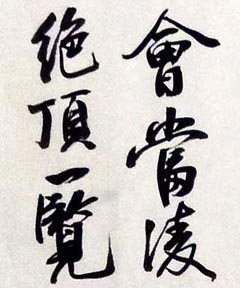 會當凌
絶頂一覽